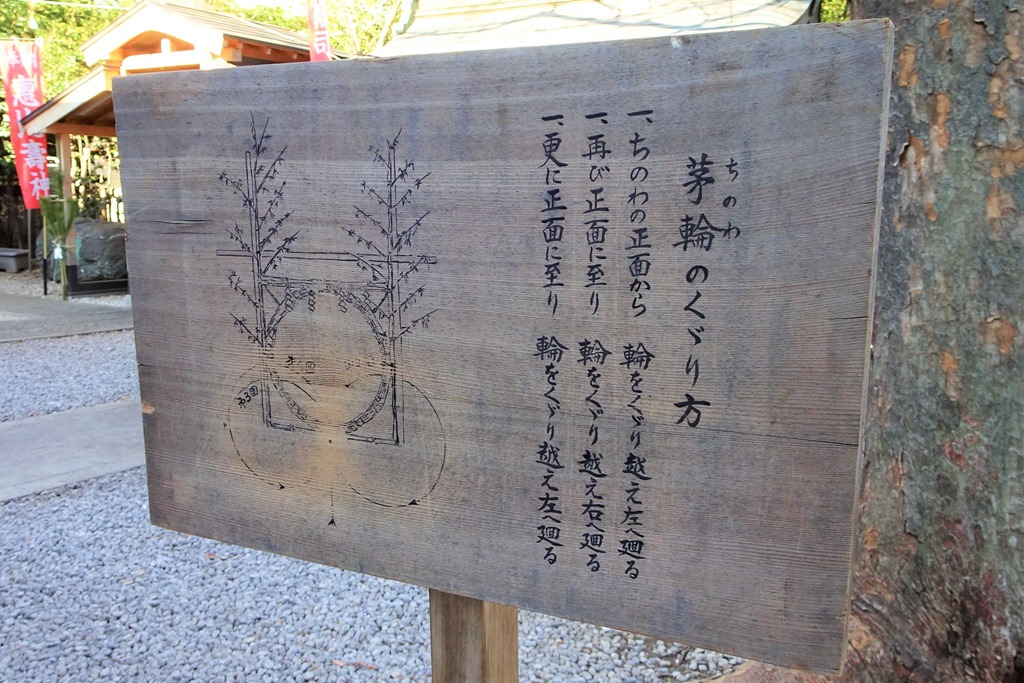 ちのわ
茅輪のくゞり方
一、ちのわの正面から 輪をくゞり越え左へ廻る
一、再び正面に至り 輪をくゞり越え右へ廻る
一、更に正面に至り 輪をくゞり越え左へ廻る
第3回
寿神
司